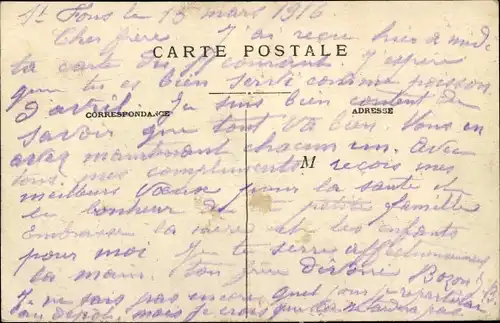 St Fons le 13 mars 1916
Cher frère J'ai reçu hier à midi
CARTE POSTALE
ta carte du courant. J'espère
que tu es bien servi comme poisson
d'avril. Je suis bien content de
CORRESPONDANCE ADRESSE
savoir que tout va bien. Vous en
avez maintenant chacun un. Avec
tous mes compliments reçois mes
M
meilleurs vœux pour la santé et
le bonheur de ta petite famille
Embrasse la mère et les enfants
pour moi Je te serre affectueusement
la main. ton frère Bozon
Je ne sais pas encore quel jour je
au dépôt, mais je crois que ça ne tardera pas